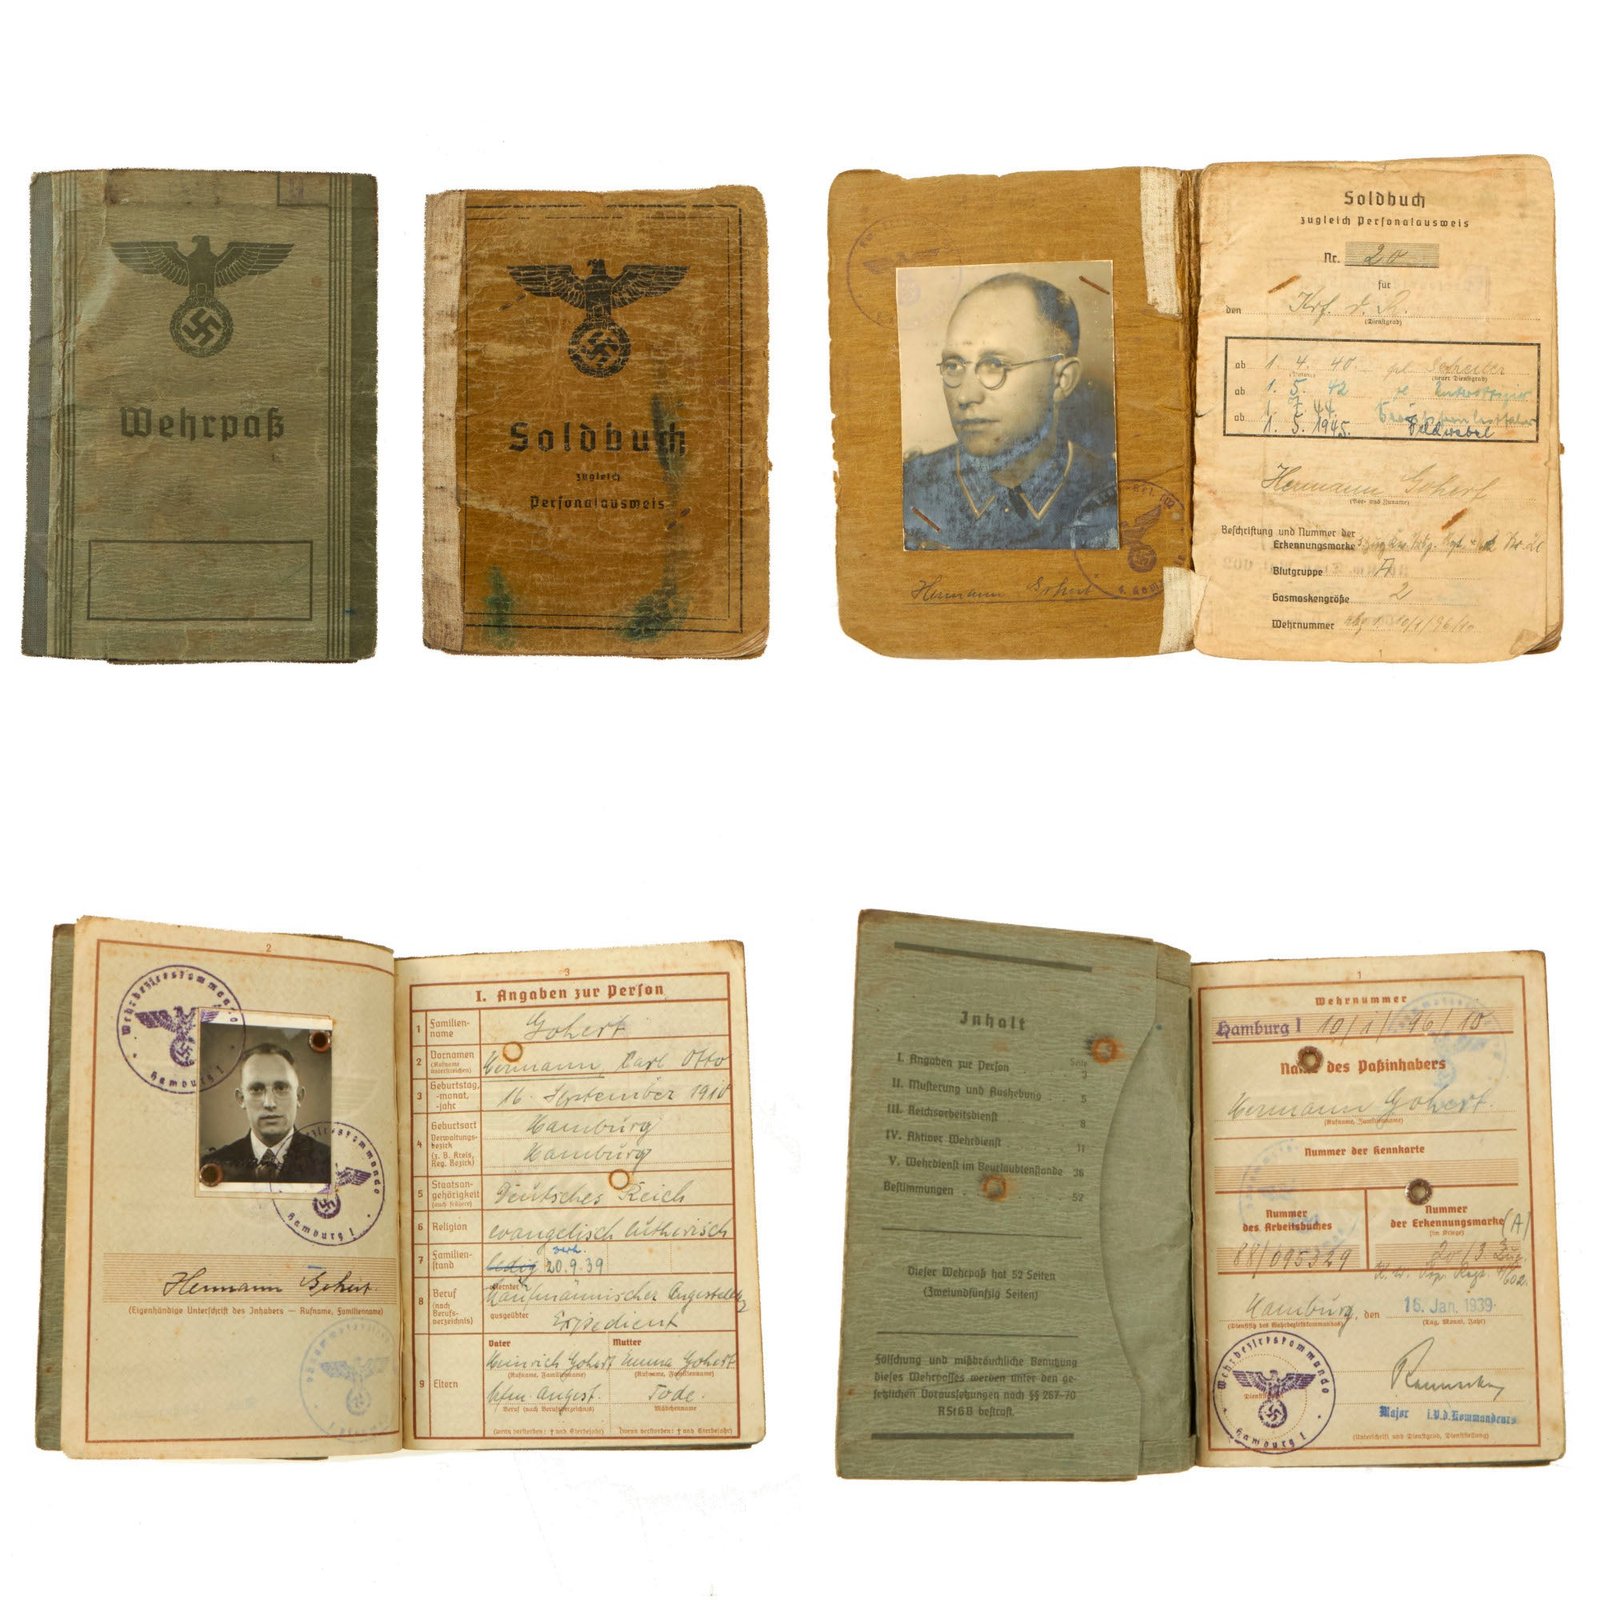 Wehrpaß
Soldbuch
zugleich
Personalausweis
Hermann
Soldbuch
zugleich Personalausweis
Nr. 20
für
den Krf. d. R.
(Dienstgrad)
ab 1. 4. 40
(neuer Dienstgrad)
ab 1. 5. 42
ab 1. 7. 44
1. 5. 1945. Feldwebel
Hermann Gohert
(Vor- und Zuname)
Beschriftung und Nummer der
Erkennungsmarke
Blutgruppe A
Gasmaskengröße 2
Wehrnummer 10/1/96/10
1
2
Wehrbezirkskommando
Hamburg I
Wehrbezirkskommando
Hamburg I
Hermann Gohert.
(Eigenhändige Unterschrift des Inhabers — Rufname, Familienname)
3
I. Angaben zur Person
1 Familien-
name Gohert
2 Vornamen
(Rufname
unterstreichen) Hermann Carl Otto
3 Geburtstag,
-monat,
-jahr 16. September 1910
4 Geburtsort Hamburg
Verwaltungs-
bezirk
(z. B. Kreis,
Reg. Bezirk) Hamburg
5 Staatsan-
gehörigkeit
(auch frühere) Deutsches Reich
6 Religion evangelisch lutherisch
7 Familien-
stand ledig verh. 20.9.39
8 Beruf
(nach
Berufs-
verzeichnis) erlernter Kaufmännischer Angestellter
ausgeübter Expedient
9 Eltern
Vater Mutter
Heinrich Gohert Emma Gohert
(Rufname, Familienname) (Rufname, Familienname)
kfm. Angest. Tode.
Beruf (nach Berufsverzeichnis) Mädchenname
(wenn verstorben: † und Sterbejahr) (wenn verstorben: † und Sterbejahr)
Inhalt
Seite
I. Angaben zur Person 3
II. Musterung und Aushebung 5
III. Reichsarbeitsdienst 8
IV. Aktiver Wehrdienst 11
V. Wehrdienst im Beurlaubtenstande 36
Bestimmungen 52
Dieser Wehrpaß hat 52 Seiten
(Zweiundfünfzig Seiten)
Fälschung und mißbräuchliche Benutzung
dieses Wehrpasses werden unter den ge-
setzlichen Voraussetzungen nach §§ 267-70
RStGB bestraft.
1
Wehrnummer
Hamburg I 10/1/96/10
Name des Paßinhabers
Hermann Gohert.
(Rufname, Familienname)
Nummer der Kennkarte
Nummer
des Arbeitsbuches
88/095329
Nummer
der Erkennungsmarke (A)
(im Kriege)
20/3
Hamburg, den 16. Jan. 1939
(Dienstsitz des Wehrbezirkskommandos) (Tag, Monat, Jahr)
Wehrbezirkskommando
Hamburg I
Major i.V.d.Kommandeurs
(Unterschrift und Dienstgrad, Dienststellung)